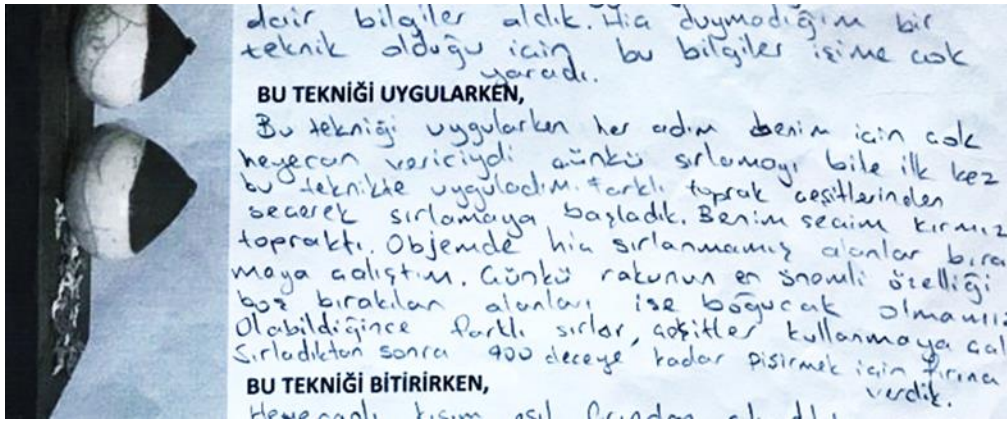 dair bilgiler aldık. Hiç duymadığım bir
teknik olduğu için bu bilgiler işime çok
yaradı.
BU TEKNİĞİ UYGULARKEN,
Bu tekniği uygularken her adım benim için çok
heyecan vericiydi çünkü sırlamayı bile ilk kez
bu teknikte uyguladım. Farklı toprak çeşitlerinden
seçerek sırlamaya başladık. Benim seçim kırmız
topraktı. Objemde hiç sırlanmamış alanlar bıra
maya çalıştım. Çünkü rakunun en önemli özelliği
boş bırakılan alanları ise
Olabildiğince farklı sırlar, çeşitler kullanmaya çal
Sırladıktan sonra 900 dereceye kadar pişirmek için fırına
verdik.
BU TEKNİĞİ BİTİRİRKEN,
Heyecanlı kısım asıl fırından